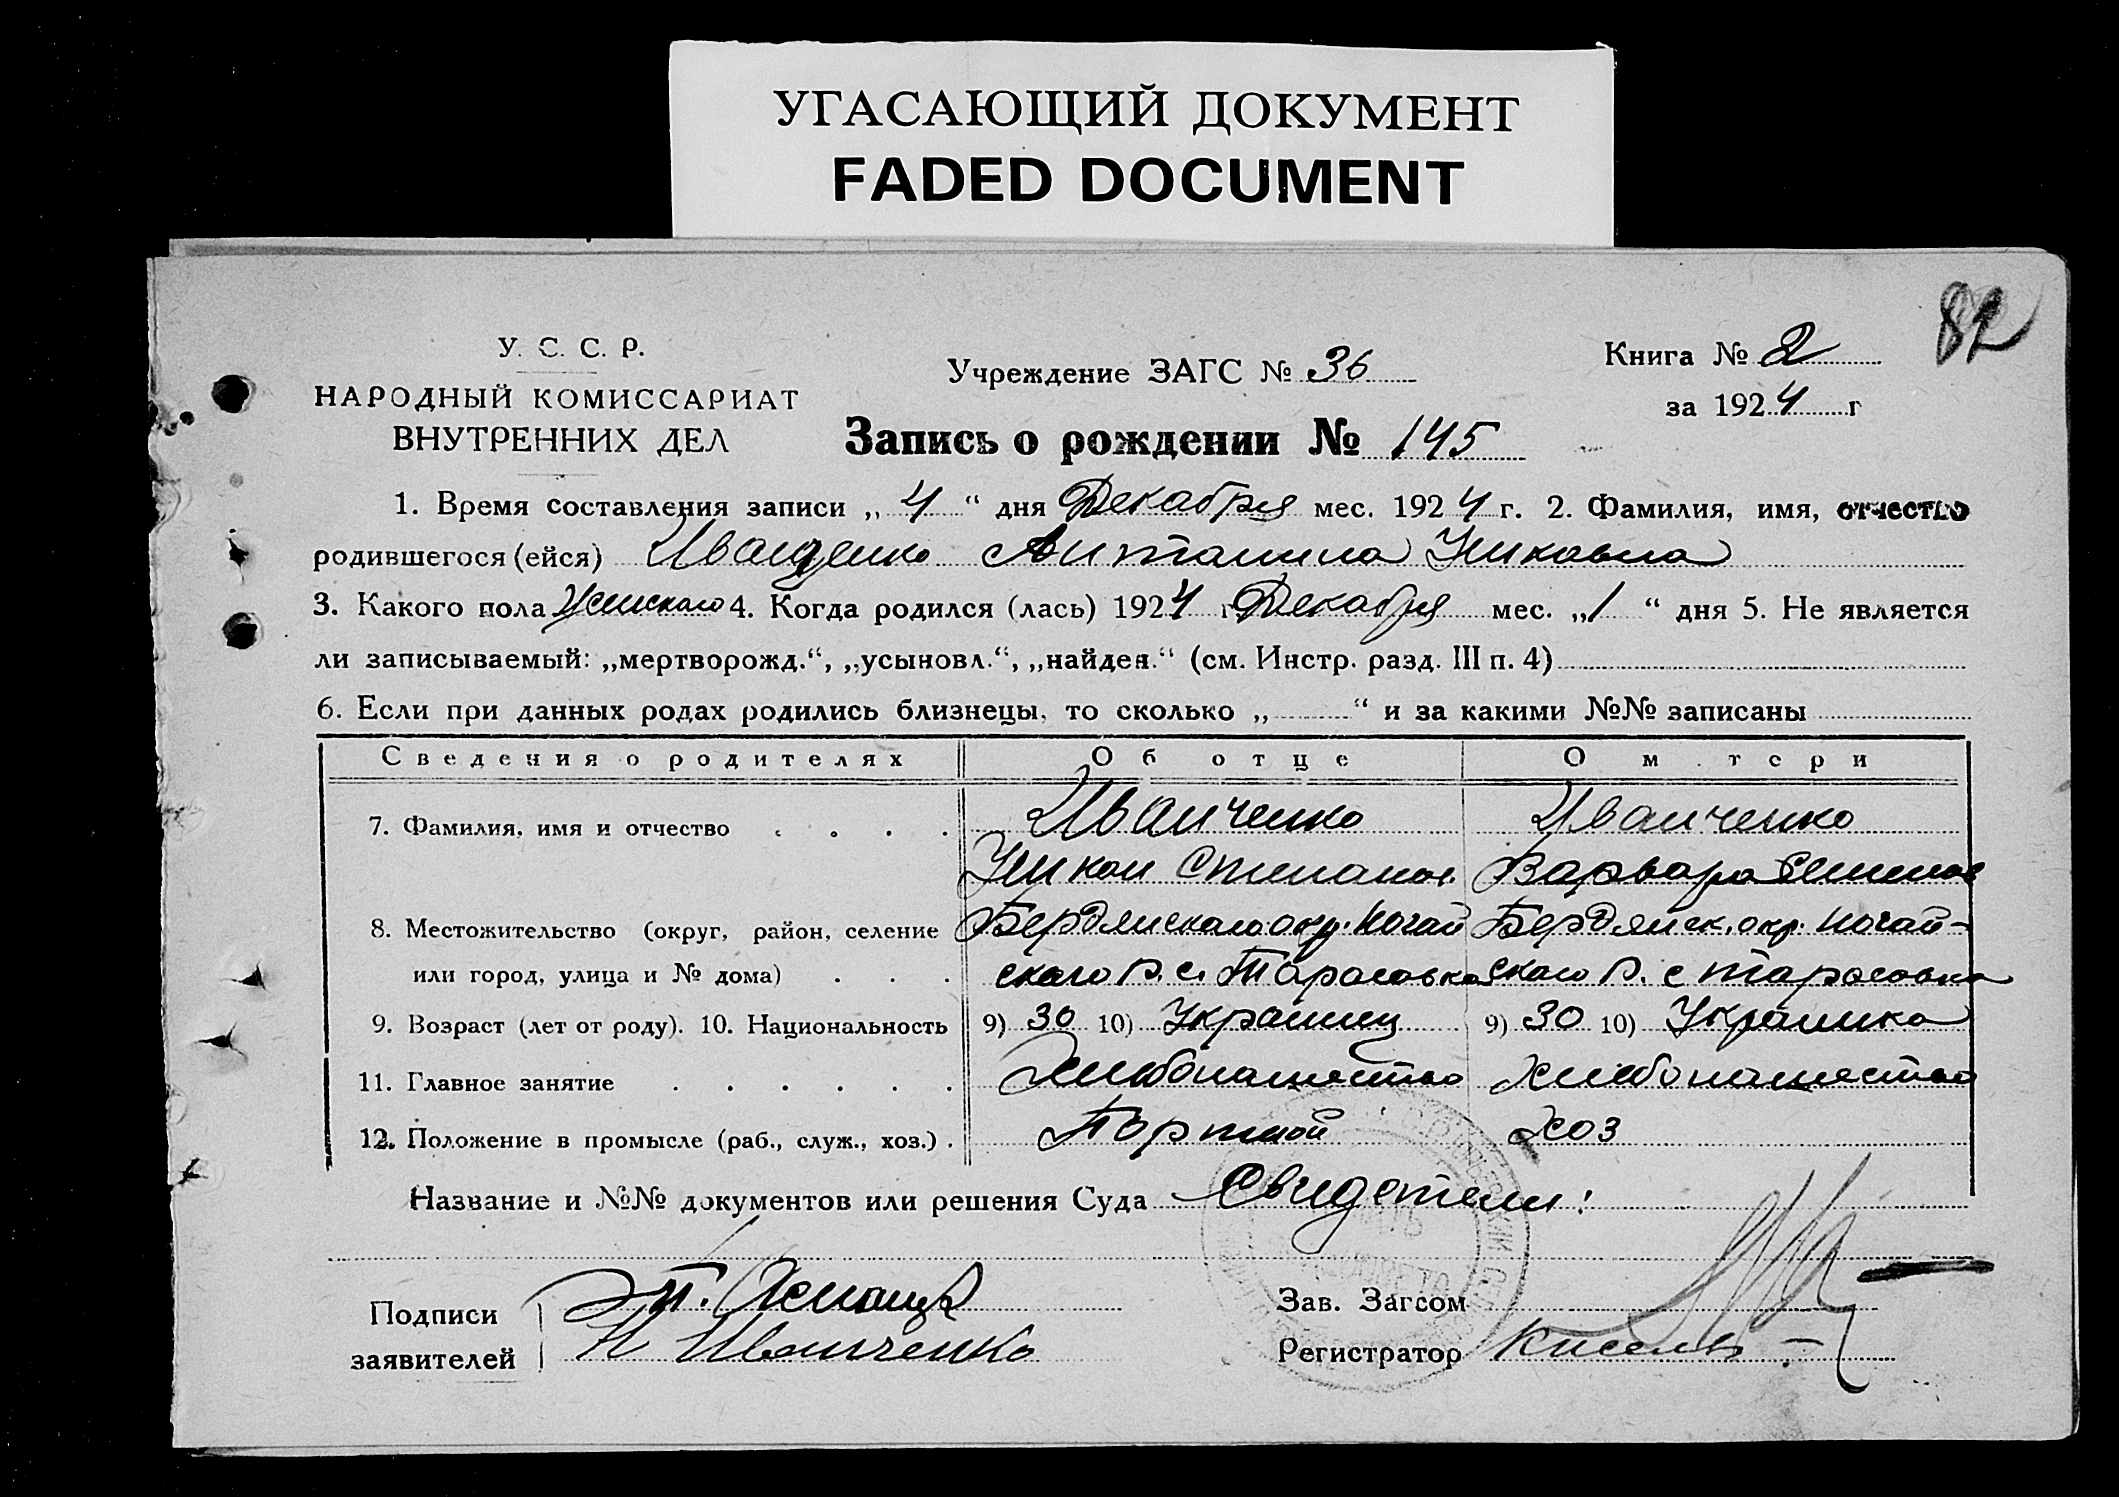 УГАСАЮЩИЙ ДОКУМЕНТ
FADED DOCUMENT
82
У. С. С. Р.
НАРОДНЫЙ КОМИССАРИАТ
ВНУТРЕННИХ ДЕЛ
Учреждение ЗАГС № 36
Книга № 2
за 1924 г
Запись о рождении № 145
1. Время составления записи „ 4 “ дня Декабря мес. 1924 г. 2. Фамилия, имя, отчество
родившегося (ейся) Иванченко Антонина Никовна
3. Какого пола Женского 4. Когда родился (лась) 1924 г Декабря мес. „1 “ дня 5. Не является
ли записываемый: „мертворожд.“, „усыновл.“, „найден.“ (см. Инстр. разд. III п. 4)
6. Если при данных родах родились близнецы, то сколько „ “ и за какими №№ записаны
Сведения о родителях Об отце О м тери
7. Фамилия, имя и отчество . . . . Иванченко Иванченко
Никон Степанов. Варвара Семенов
8. Местожительство (округ, район, селение Бердянского окр. Ногай Бердянск. окр. Ногай-
или город, улица и № дома) . . . ского р. с. Тарасовка ского р. с Тарасовка
9. Возраст (лет от роду). 10. Национальность 9) 30 10) Украинец 9) 30 10) Украинка
11. Главное занятие . . . . . . Хлебопашество Хлебопашество
12. Положение в промысле (раб., служ., хоз.) . Портной Хоз
Название и №№ документов или решения Суда Свидетели:
Подписи
заявителей Н Иванченко
Зав. Загсом
Регистратор Кисель